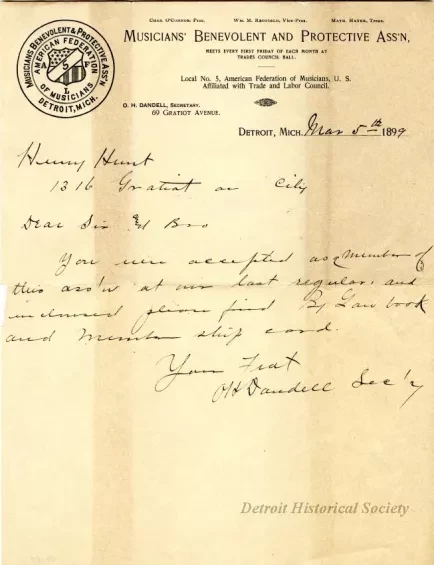 Chas. O'Connor, Pres. Wm. M. Brondle, Vice-Pres. Math. Mayer, Treas.
MUSICIANS' BENEVOLENT AND PROTECTIVE ASS'N,
MEETS EVERY FIRST FRIDAY OF EACH MONTH AT
TRADES COUNCIL HALL.
Local No. 5, American Federation of Musicians, U. S.
Affiliated with Trade and Labor Council.
MUSICIANS BENEVOLENT & PROTECTIVE ASS'N
AMERICAN FEDERATION
A 5 F
L
OF MUSICIANS
DETROIT, MICH.
O. H. DANDELL, SECRETARY.
69 GRATIOT AVENUE.
DETROIT, MICH. Mar 5th 1899
Henry Hunt
1316 Gratiot av City
Dear Sir & Bro
You were accepted as a member of
this ass'n at our last regular, and
inclosed please find By Law book
and Member ship card.
Your Frat
OH Dandell Sec'y
Detroit Historical Society